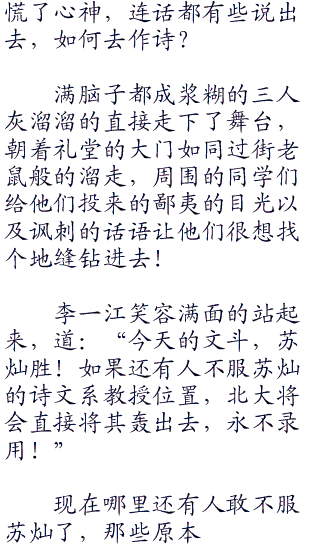 慌了心神，连话都有些说出
去，如何去作诗？
满脑子都成浆糊的三人
灰溜溜的直接走下了舞台，
朝着礼堂的大门如同过街老
鼠般的溜走，周围的同学们
给他们投来的鄙夷的目光以
及讽刺的话语让他们很想找
个地缝钻进去！
李一江笑容满面的站起
来，道：“今天的文斗，苏
灿胜！如果还有人不服苏灿
的诗文系教授位置，北大将
会直接将其轰出去，永不录
用！”
现在哪里还有人敢不服
苏灿了，那些原本